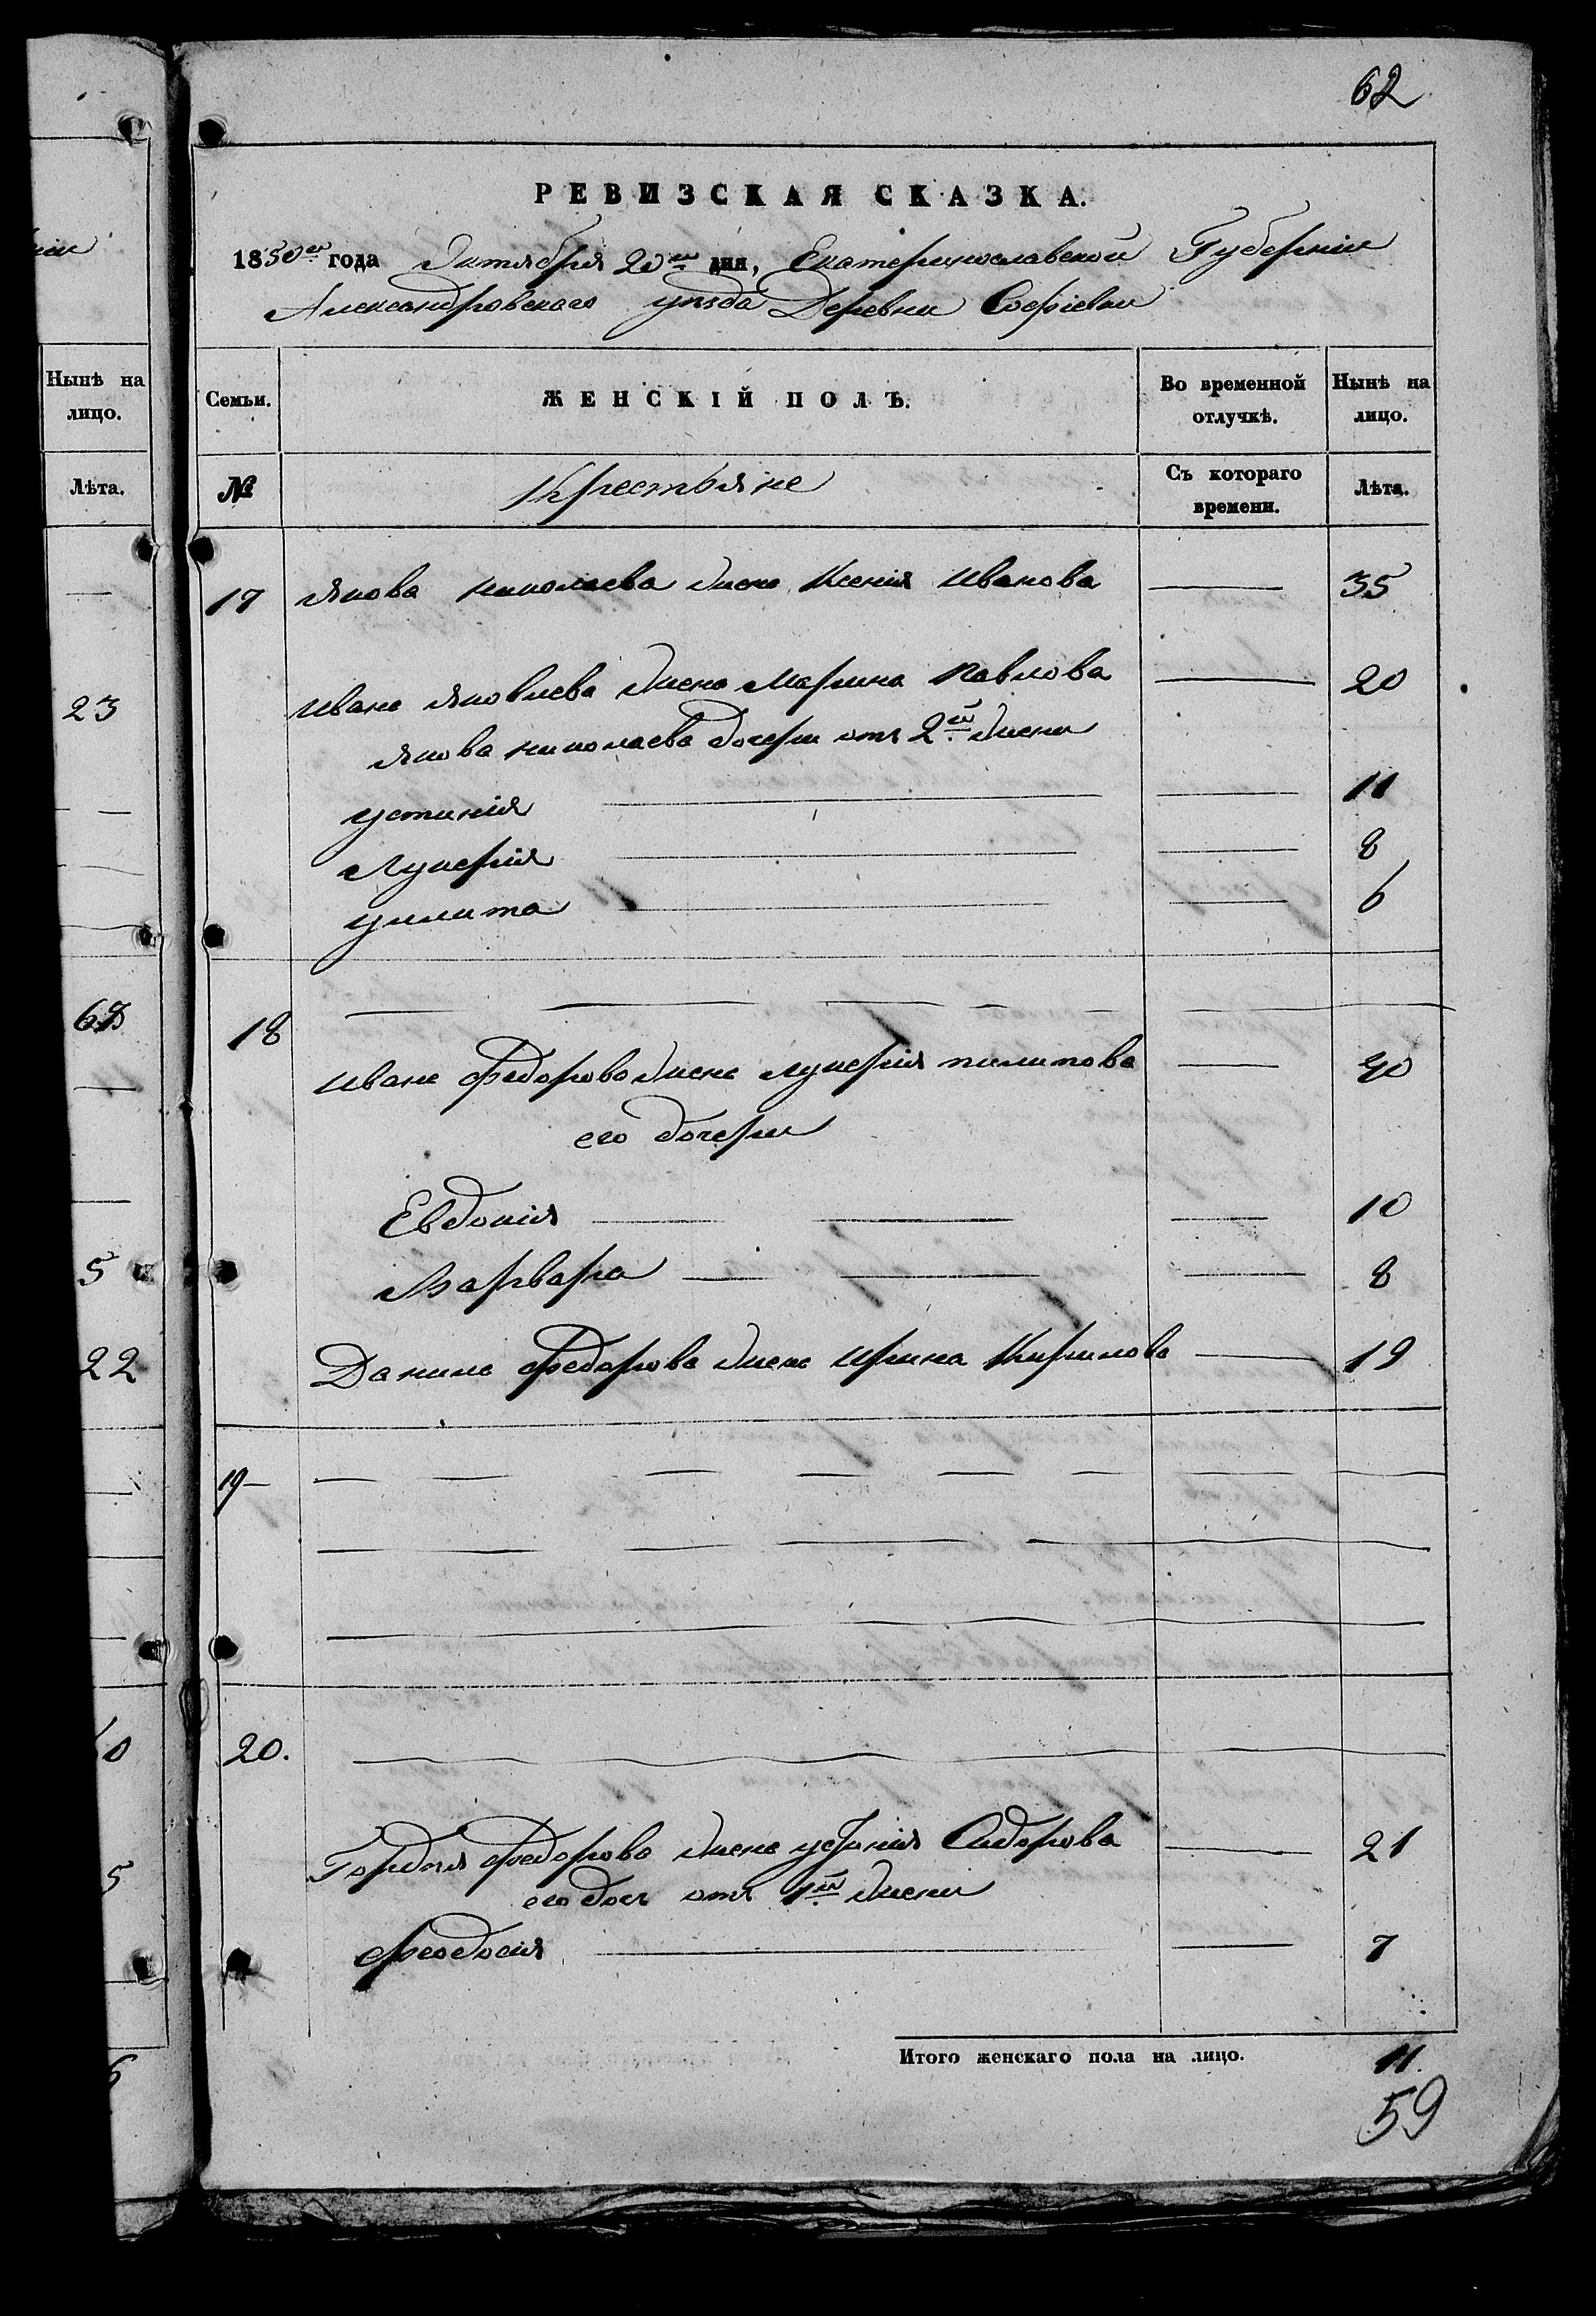 62
РЕВИЗСКАЯ СКАЗКА.
1850го года Октября 20го дня, Екатеринославской Губерніи
Александровскаго уѣзда Деревни Софіевки
Нынѣ на лицо.
Лѣта.
23
68
5
22
5
Семьи.
ЖЕНСКІЙ ПОЛЪ.
Во временной отлучкѣ.
Нынѣ на лицо.
№
Крестьяне
Съ котораго времени.
Лѣта.
17 Якова Николаева жена Ксенія Иванова — 35
Ивана Яковлева жена Марина Павлова — 20
Якова Николаева дочери отъ 2й жены
Устинія — — 11
Лукерія — — 8
Улита — — 6
18 — — — — —
Ивана Федорова жена Лукерія Пилипова — 40
его дочери
Евдокія — — — 10
Варвара — — — 8
Данила Федорова жена Ирина Кирилова — 19
19 — — — — —
20. — — — — —
Гордѣя Федорова жена Устинія Сидорова — 21
его доч отъ 1й жены
Феодосія — — 7
Итого женскаго пола на лицо. 11.
59